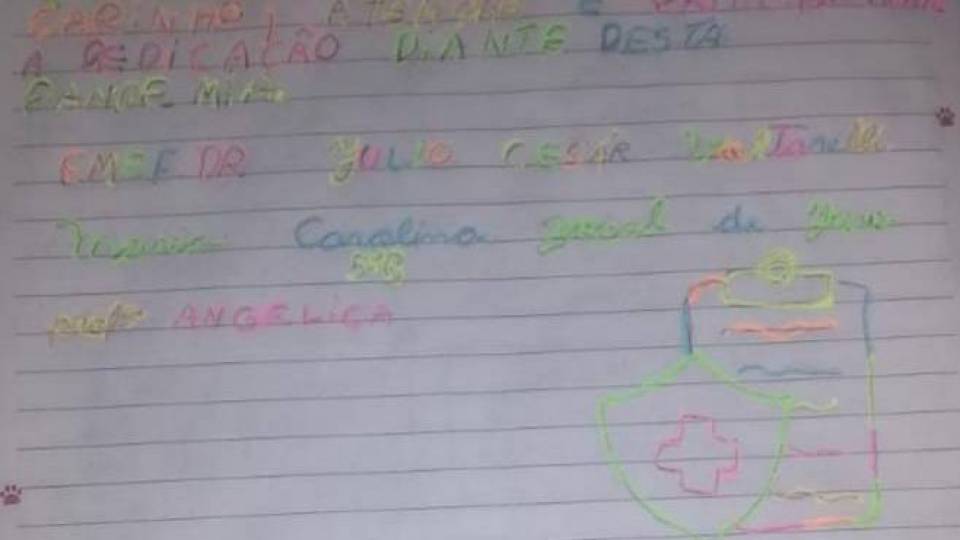 CARINHO, ATENÇÃO E
A DEDICAÇÃO DIANTE DESTA
PANDEMIA.
EMEF DR JULIO CESAR
Carolina de Jesus
5ºB
profª ANGELICA